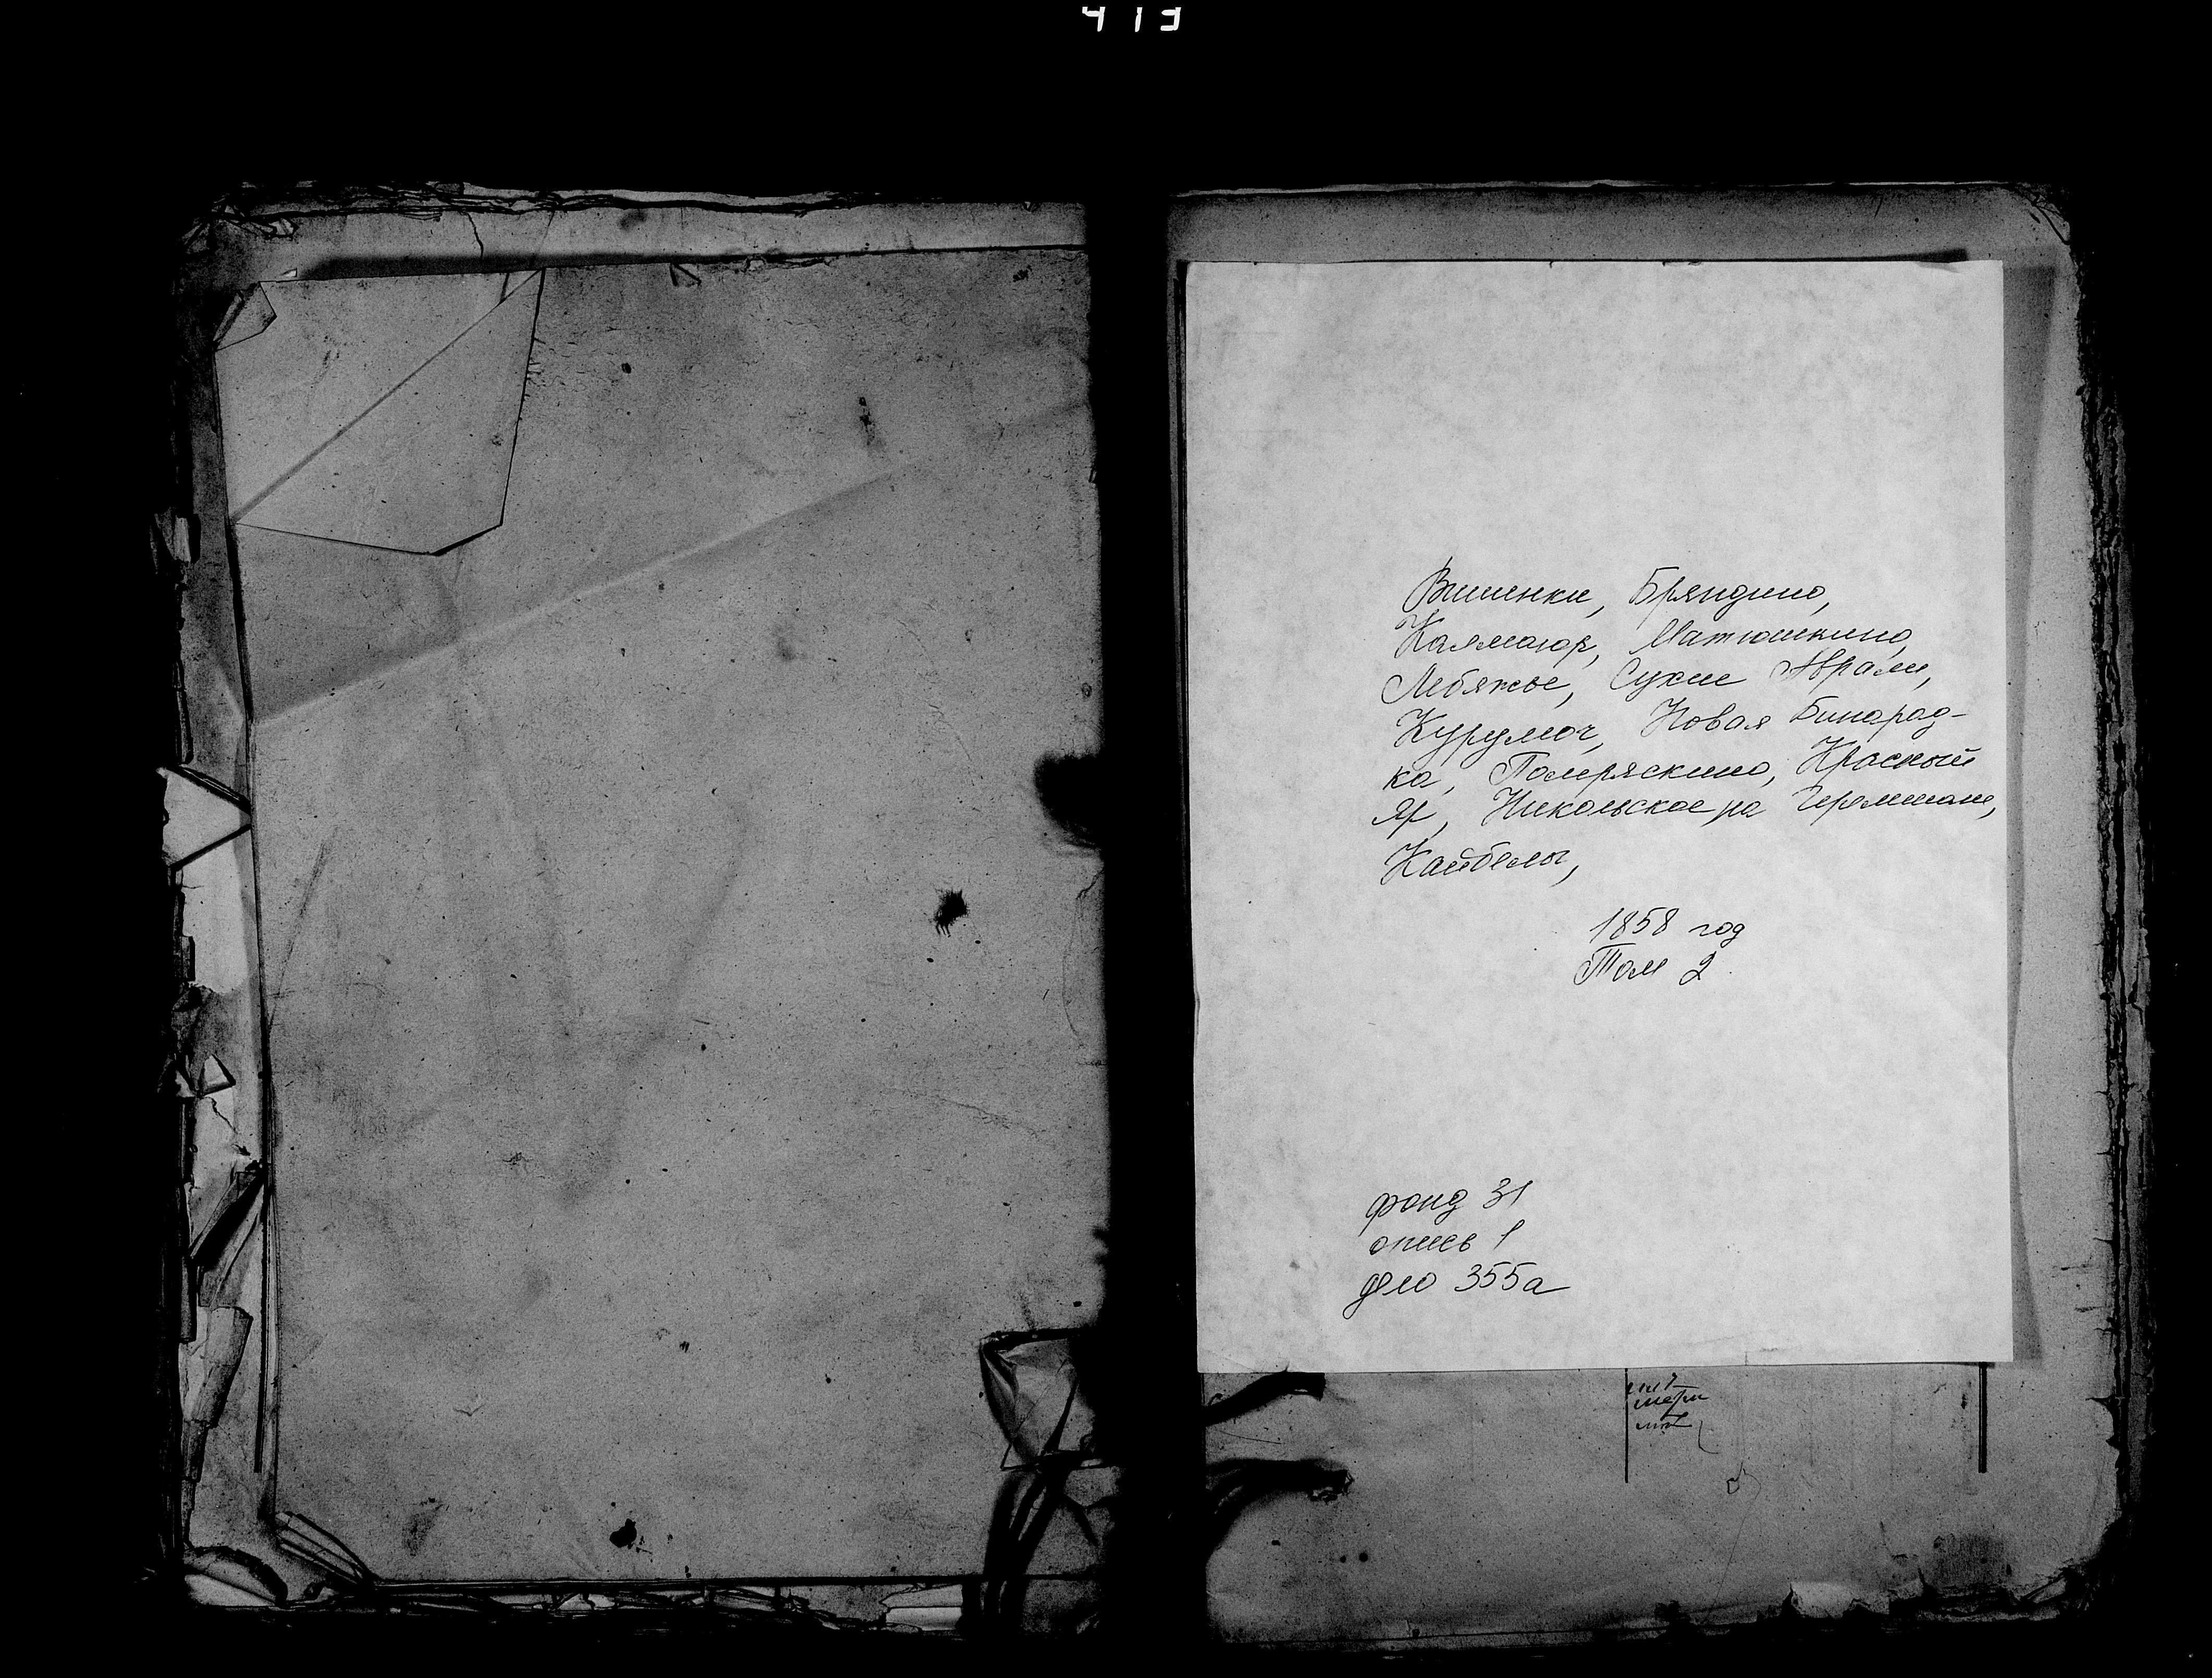 413
Вишенки, Бряндино,
Каямаюр, Матюшкино,
Лебяжье, Сухие Аврали,
Курумоч, Новая Бинарад-
ка, Помряскино, Красный
Яр, Никольское на Черемшане,
Кайбелы,
1858 год
Том 2
фонд 31
опись 1
дело 355а